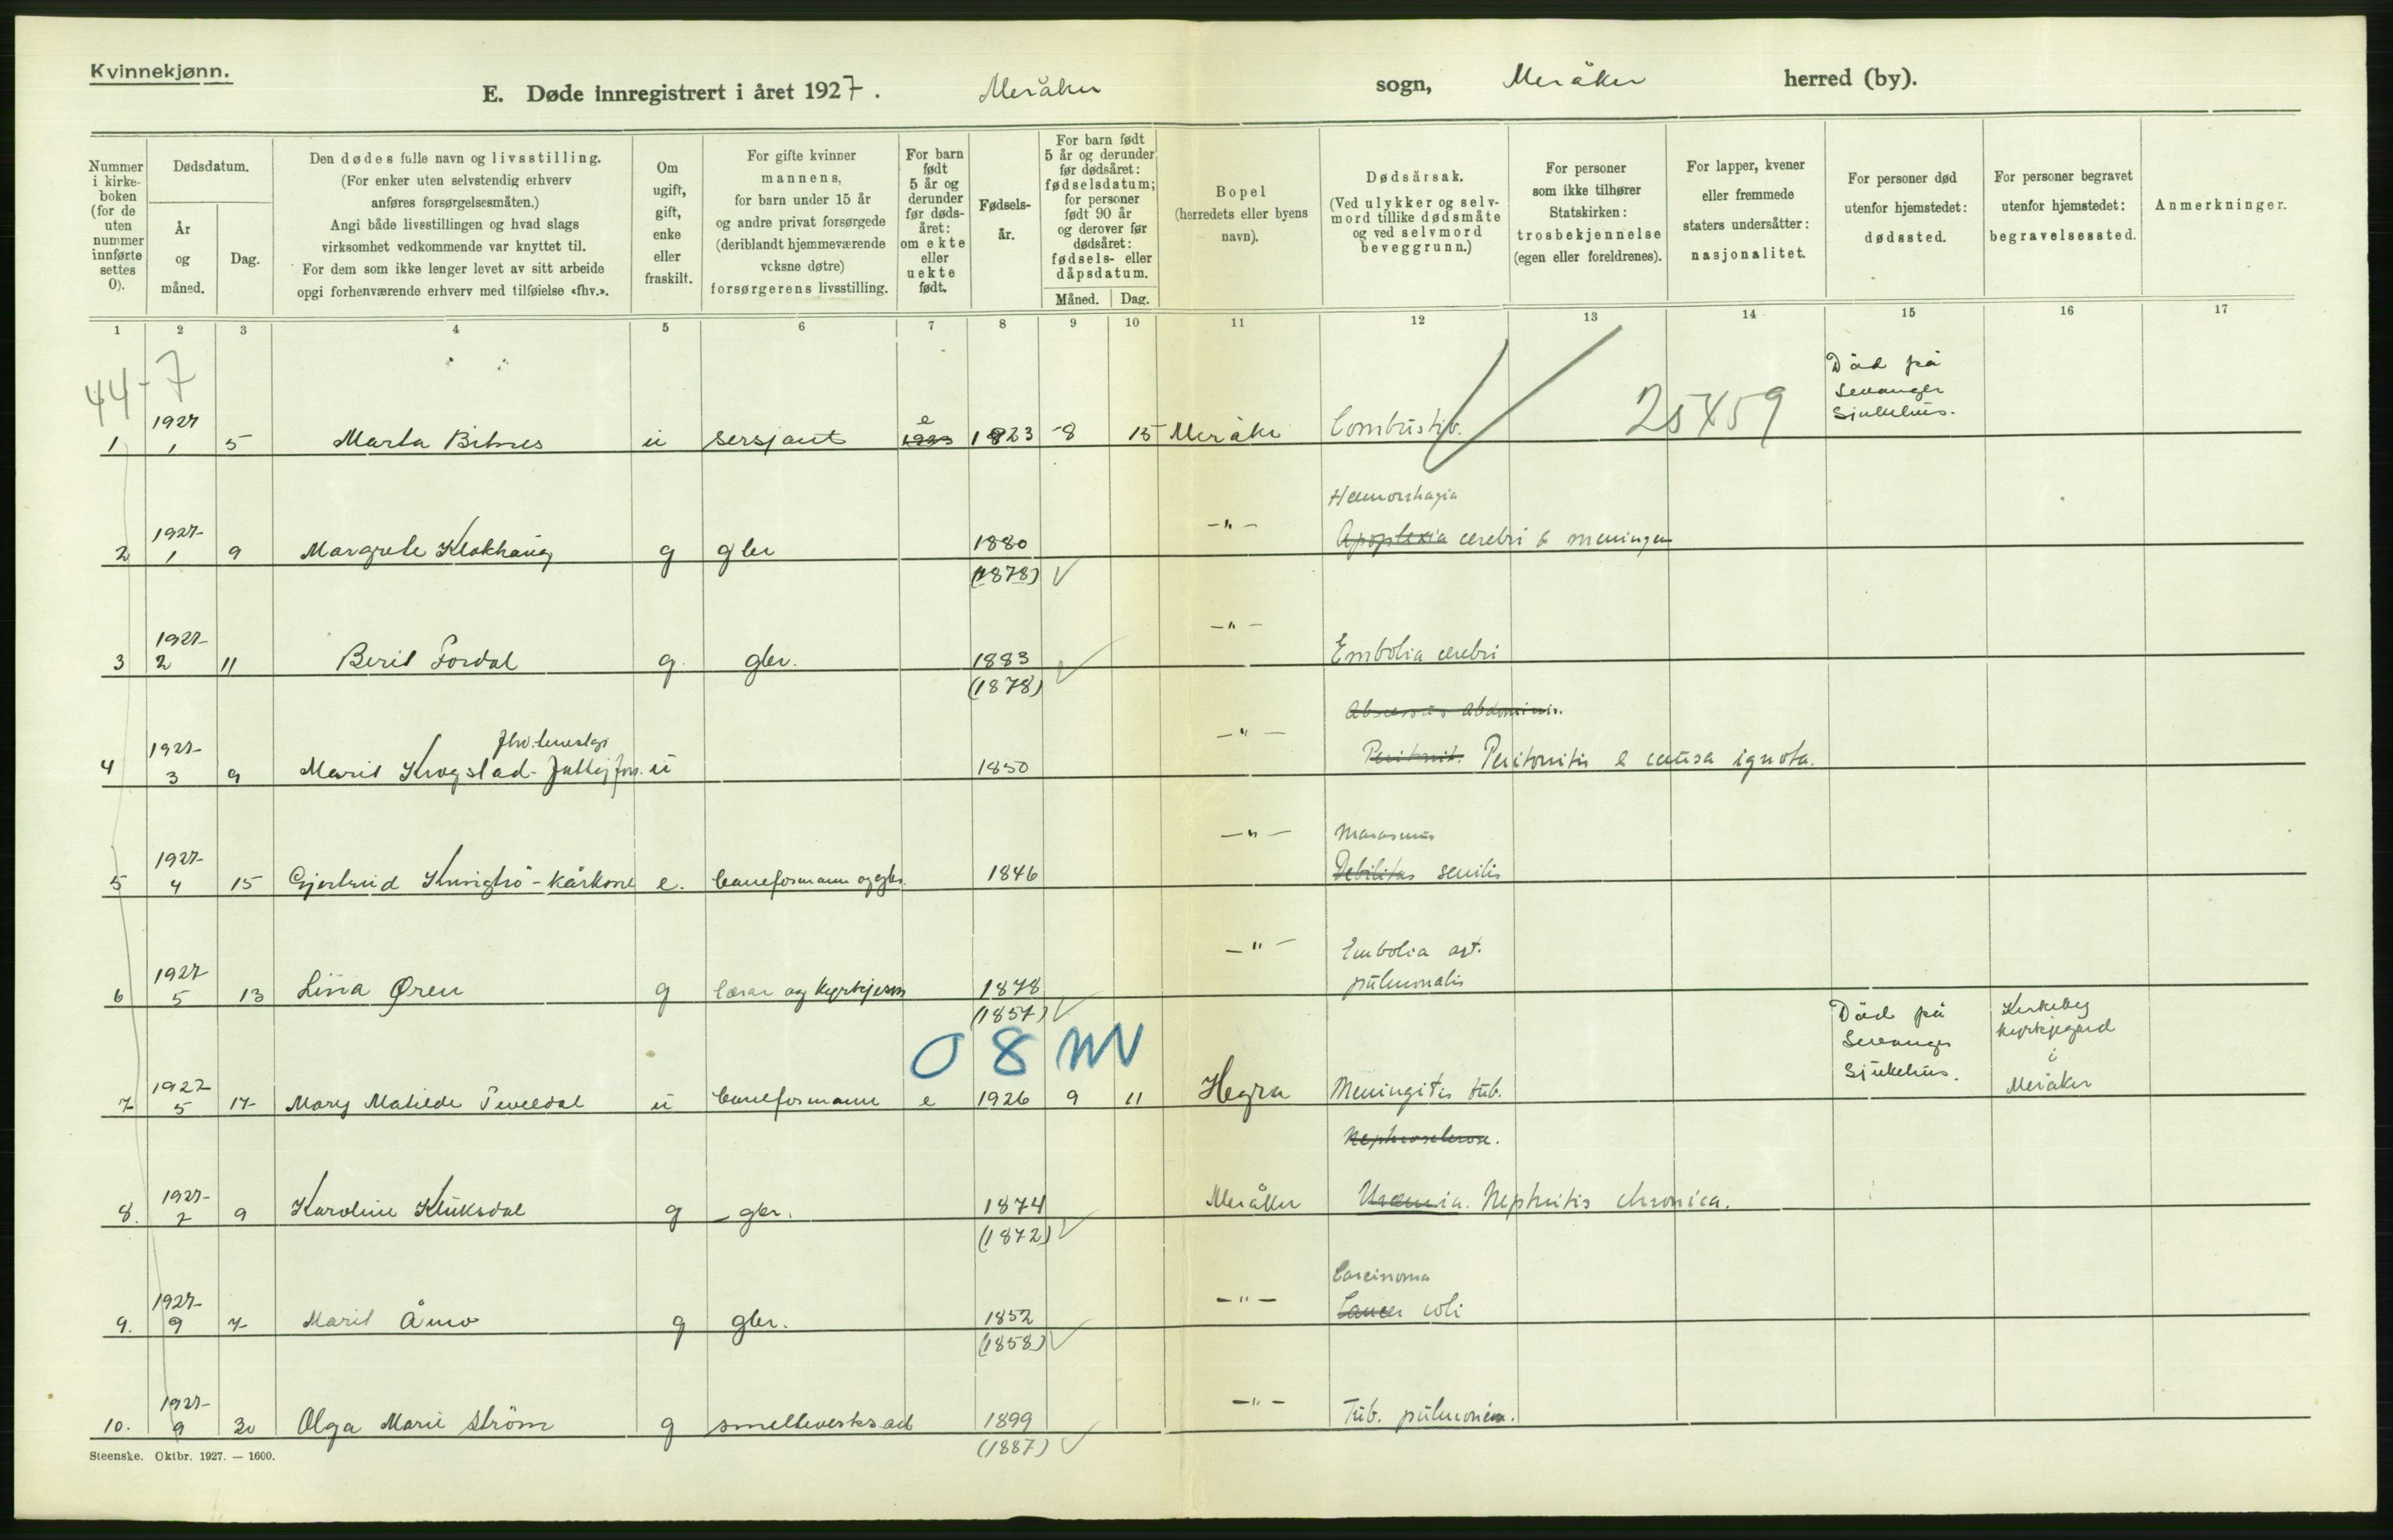 Kvinnekjønn.
E. Døde innregistrert i året 1927. Meråker sogn, Meråker herred (by).
Nummer i kirkeboken (for de uten nummer innførte settes 0).
Dødsdatum.
År og måned.
Dag.
Den dødes fulle navn og livsstilling.
(For enker uten selvstendig erhverv
anføres forsørgelsesmåten.)
Angi både livsstillingen og hvad slags
virksomhet vedkommende var knyttet til.
For dem som ikke lenger levet av sitt arbeide
opgi forhenværende erhverv med tilføielse «fhv.».
Om ugift, gift, enke eller fraskilt.
For gifte kvinner
mannens,
for barn under 15 år
og andre privat forsørgede
(deriblandt hjemmeværende
vcksne døtre)
forsørgerens livsstilling.
For barn født 5 år og derunder før dødsåret: om ekte eller uekte født.
Fødselsår.
For barn født 5 år og derunder før dødsåret: fødselsdatum; for personer født 90 år og derover før dødsåret: fødsels- eller dåpsdatum.
Måned. Dag.
Bopel
(herredets eller byens
navn).
Dødsårsak.
(Ved ulykker og selv-
mord tillike dødsmåte
og ved selvmord
beveggrunn.)
For personer
som ikke tilhører
Statskirken:
trosbekjennelse
(egen eller foreldrenes).
For lapper, kvener
eller fremmede
staters undersåtter:
nasjonalitet.
For personer død
utenfor hjemstedet:
dødssted.
For personer begravet
utenfor hjemstedet:
begravelsessted.
Anmerkninger.
1 2 3 4 5 6 7 8 9 10 11 12 13 14 15 16 17
44-7
25459
1 1927 1 5 Marta u sersjant e 1923 1923 8 15 Meråker Død på Levanger Sjukehus.
2 1927 1 9 Margrete Klokhaug g gbr 1880 (1878) -"- Haemorrhagia Apoplexia cerebri & meninges
3 1927 2 11 Beril Fordal g. gbr. 1883 (1878) -"- Embolia cerebri
4 1927 3 9 Marit Krogstad- fhv. u 1850 -"- Abscessus abdominis. Peritonit. Peritonitis e causa ignota.
5 1927 4 15 Gjertrud kårkone e. baneformann og gbr. 1846 -"- Marasmus Debilitas senilis
6 1927 5 13 Lina Øren g lærar og 1878 (1857) -"- Embolia art. pulmonalis
O 8 m
7 1927 5 17 Mary Matilde Teveldal u baneformann e 1926 9 11 Hegra Meningitis tub. Død på Levanger Sjukehus. Kirkeby kyrkjegard i Meråker
8. 1927 7 9 Karoline Kluksdal g gbr. 1874 (1872) Meråker Nephrosclerose. Uraemia. Nephritis chronica.
9. 1927 9 7 Marit Åmo g gbr. 1852 (1858) -"- Carcinoma Cancer coli
10. 1927 9 30 Olga Marie Ström g smelteverksarb 1899 (1887) -"- Tub. pulmonum.
Steenske. Oktbr. 1927. — 1600.